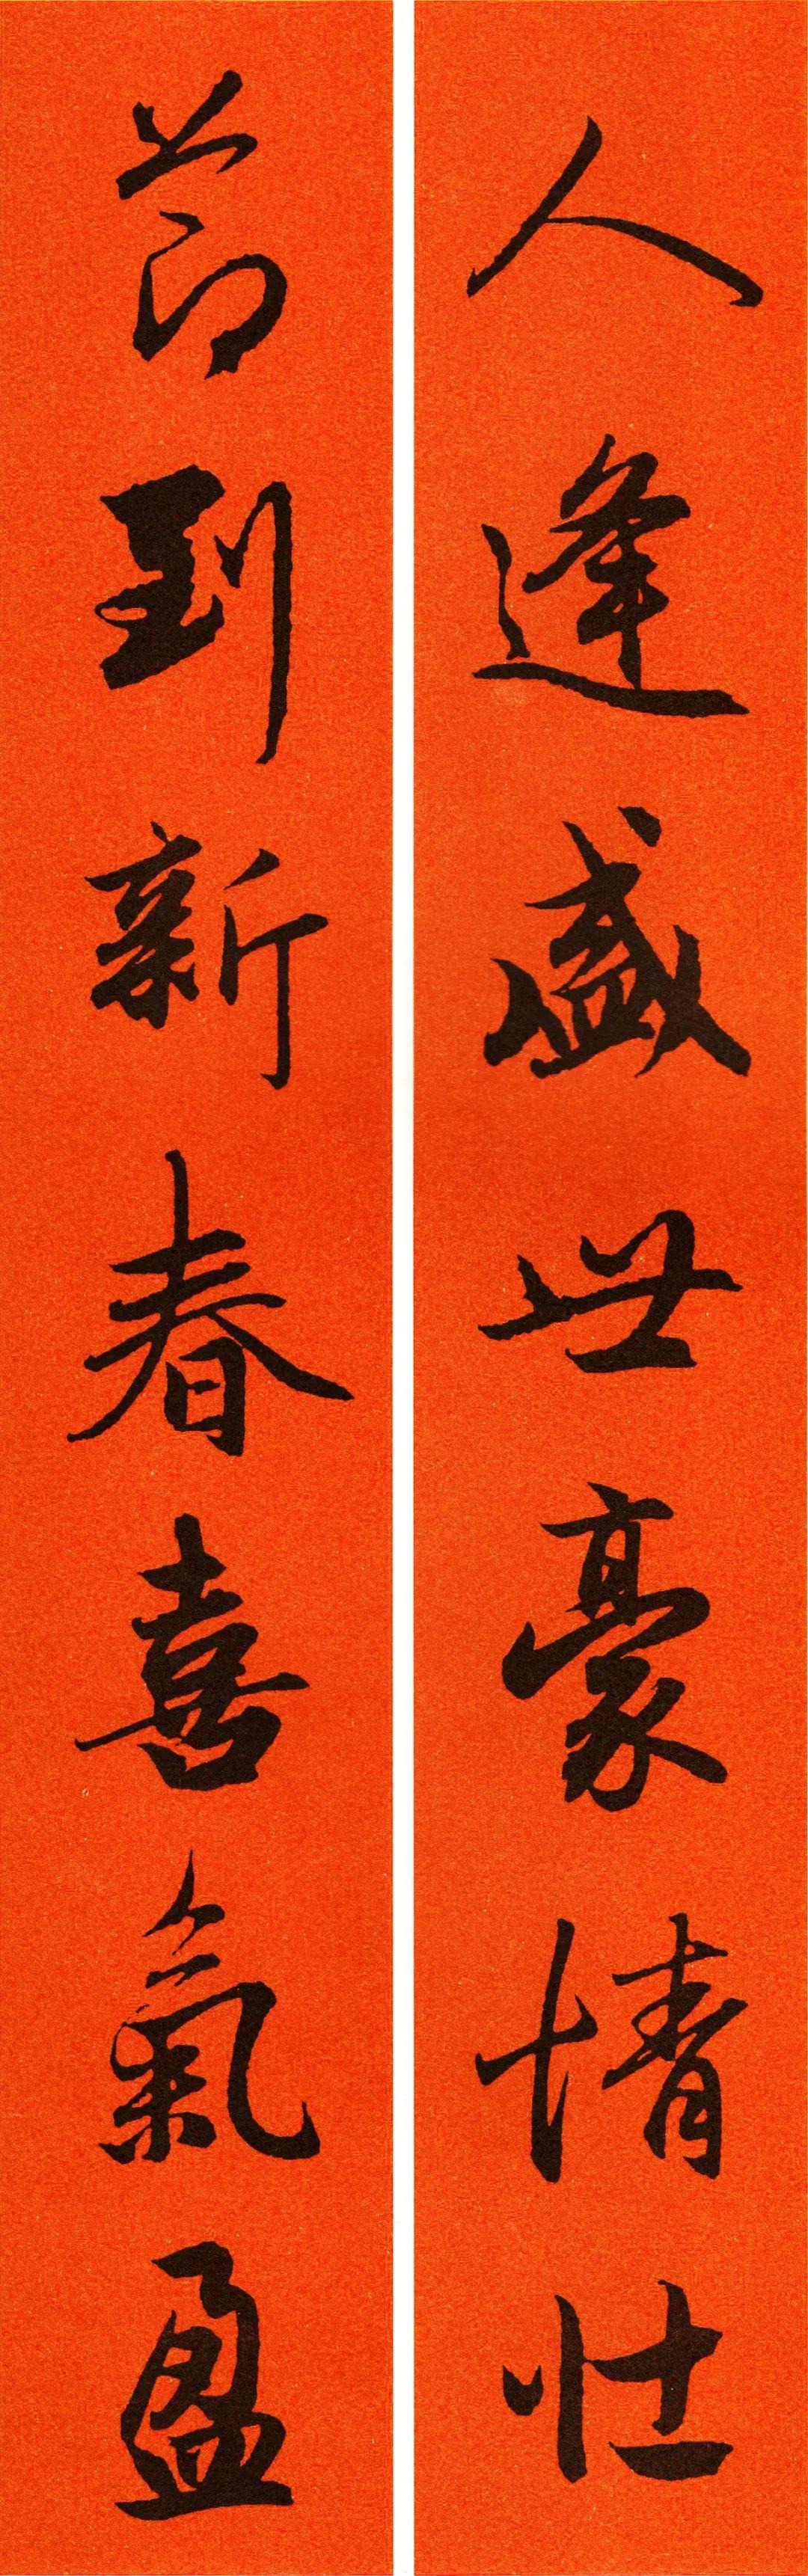 人逢盛世豪情壮
節到新春喜氣盈